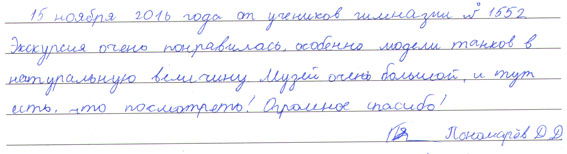 15 ноября 2016 года от учеников гимназии № 1552
Экскурсия очень понравилась, особенно модели танков в
натуральную величину Музей очень большой, и тут
есть, что посмотреть! Огромное спасибо!
Пономарёв Д Д